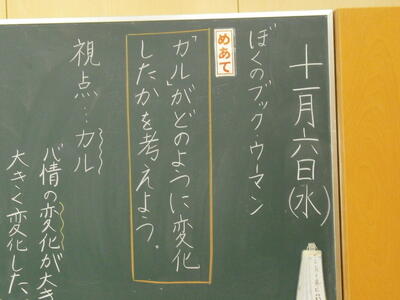 十一月六日(水)
ぼくのブック・ウーマン
めあて
カルがどのように変化
したかを考えよう。
視点…カル
心情の変化が大き
大きく変化した、